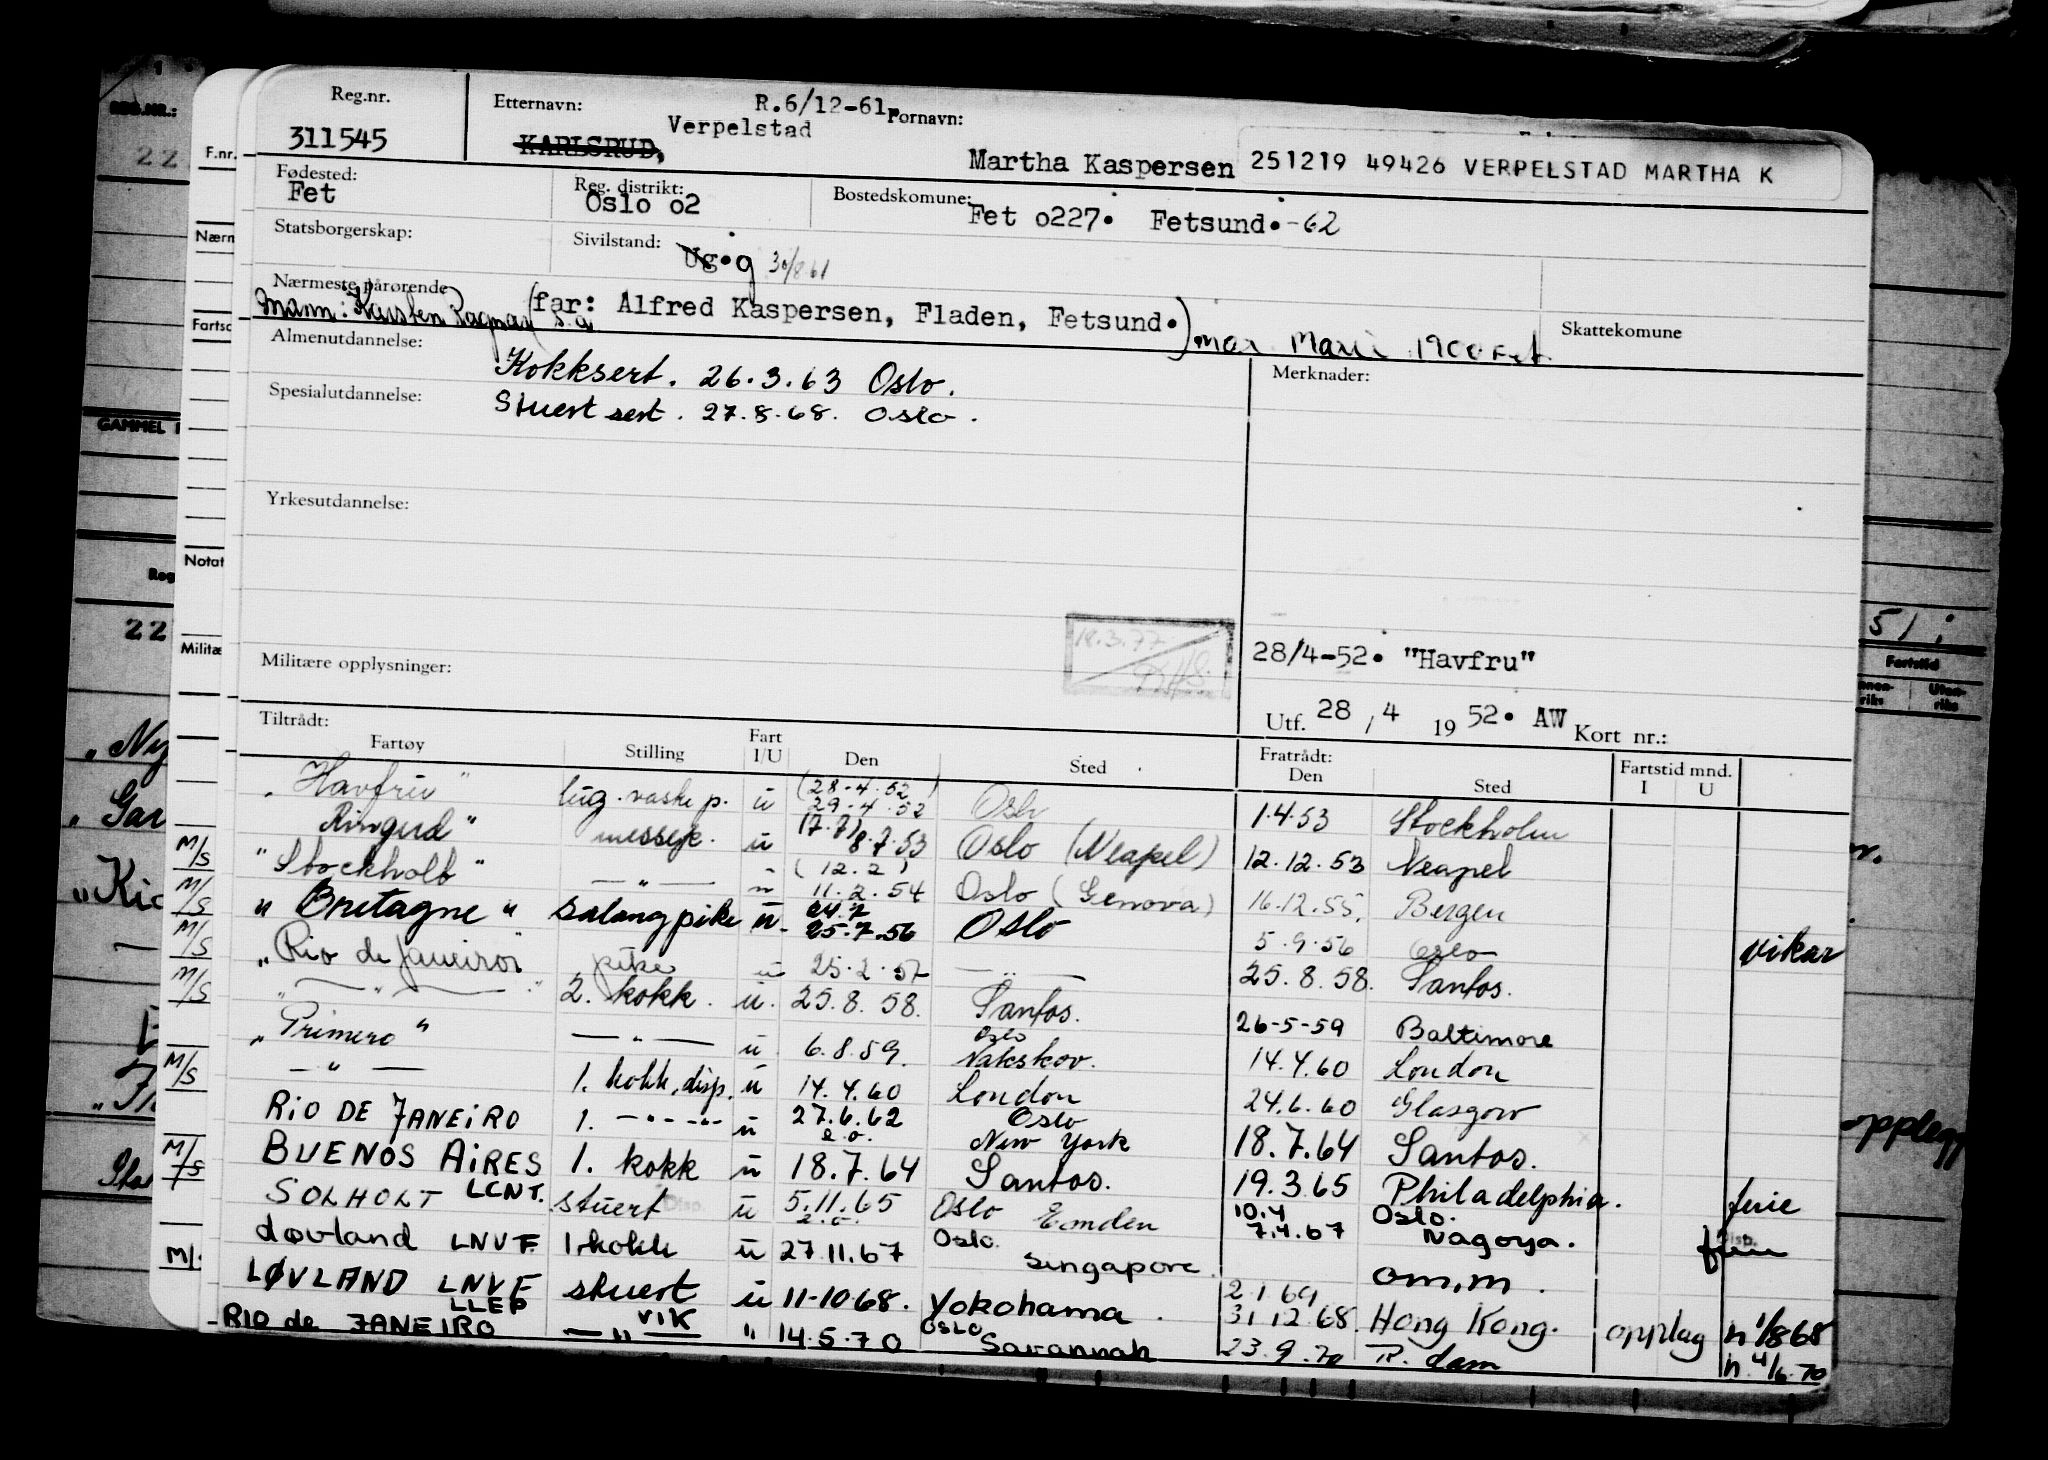 Reg.nr. Etternavn: R.6/12-61. Fornavn:
311545 KARLSRUD, Verpelstad Martha Kaspersen 251219 49426 VERPELSTAD MARTHA K
Fødested: Reg. distrikt: Bostedskomune:
Fet Oslo o2 Fet o227. Fetsund.-62
Statsborgerskap: Sivilstand: Ug. g 30/8 61
Nærmeste pårørende
Mann: Karsten Ragnar s.a (far: Alfred Kaspersen, Fladen, Fetsund.) mor Marie 1900 Fet. Skattekomune
Almenutdannelse: Kokksert. 26.3.63 Oslo. Merknader:
Spesialutdannelse: Stuert sert. 27.8.68. Oslo.
Yrkesutdannelse:
18.3.77
Militære opplysninger: 28/4-52. "Havfru"
Utf. 28 / 4 19 52. AW Kort nr.:
Tiltrådt: Fratrådt: Fartstid mnd.
Fartøy Stilling Fart I/U Den Sted Den Sted I U
"Havfru" lug.vaske p. u (28-4.52) 29-4.52 Oslo 1.4.53 Stockholm
Ringerd" messepk. u 17.7) 8.7.53 Oslo (Neapel) 12.12.53 Neapel
M/S "Stockholt" —"— u (12.2) 11.2.54 Oslo (Genova) 16.12.55. Bergen
M/S "Bretagne" salongpike u. 24.7 25.7.56 Oslo 5.9.56 Oslo vikar
M/S "Rio de Janeiro" pike u 25.2.57 —"— 25.8.58. Santos.
M/S —"— 2. kokk. u. 25.8.58. Santos. 26-5-59 Baltimore
"Primero" —"— u. 6.8.59. Oslo Nakskov. 14.4.60 London
M/S —"— 1. kokk, disp. u 14.4.60 London 24.6.60 Glasgow
RIO DE JANEIRO 1. —"— u 27.6.62 e.o. Oslo New York 18.7.64 Santos.
M/S BUENOS AIRES 1. kokk u 18.7.64 Santos. 19.3.65 Philadelphia. ferie
SOLHOLT LCNT. stuert Disp. u 5.11.65 e.o. Oslo Emden 10.4 7.4.67 Oslo. Nagoya.
M/S Løvland LNVF. 1.kokk u 27.11.67 Oslo. Singapore. om.m.
LØVLAND LNVF stuert u 11-1068. Yokohama. 2 1 69 31 12.68. Hong Kong. opplag n 1/8 68
RIO de JANEIRO LLEP —"— VIK " 14.5.70 Oslo Savannah 23.9.70 R.dam n 4/6.70
REG.NR.:
22
F.nr.
Nærm
GAMMEL
Notat
Reg
22
Militæ
51
Fartstid
Uten-riks
opplegg